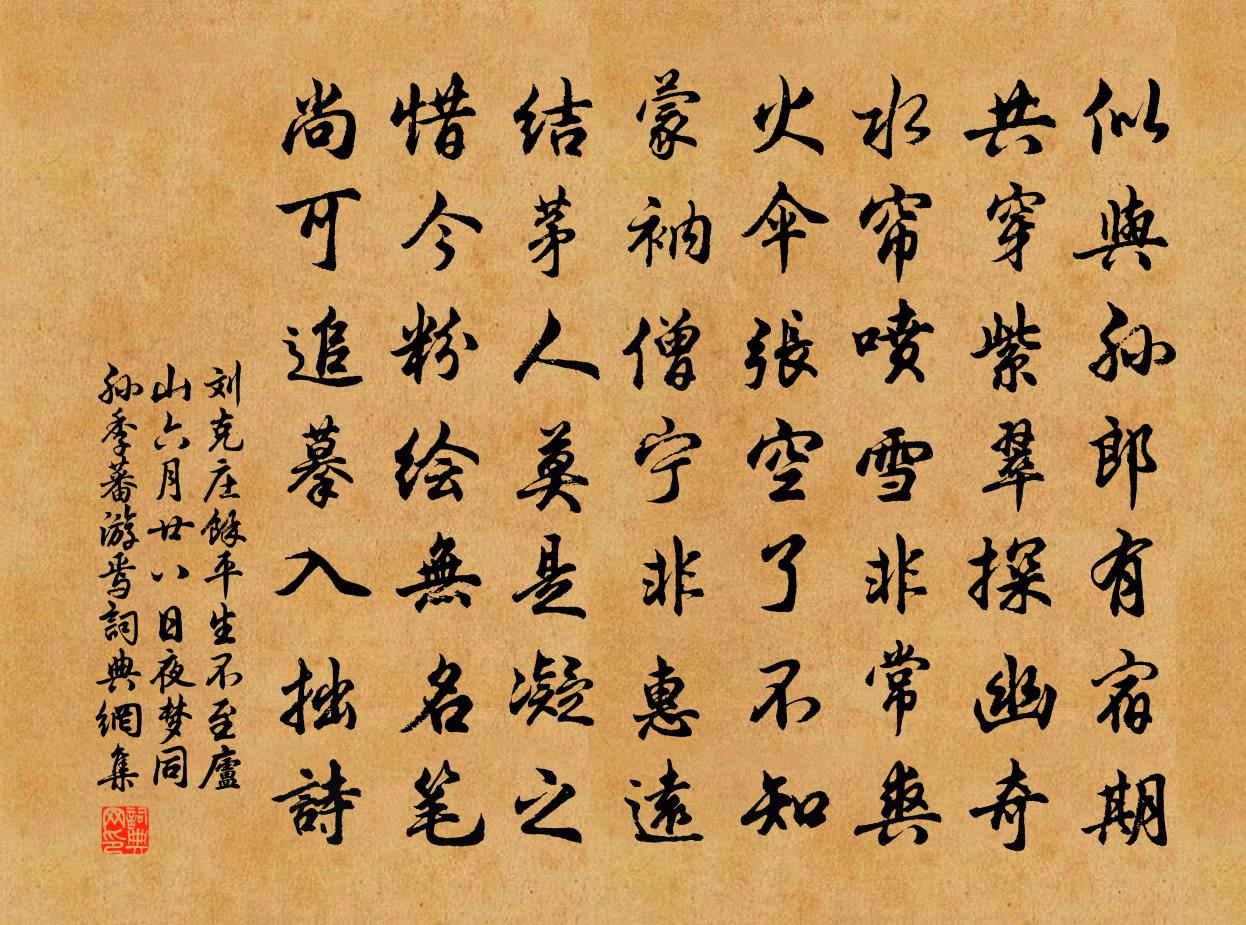 似與孫郎有宿期
共穿紫翠探幽奇
水帘噴雪非常爽
火伞張空了不知
蒙衲僧宁非惠遠
结茅人莫是凝之
惜今粉绘無名笔
尚可追摹入拙詩
刘克庄餘平生不至廬
山六月廿八日夜梦同
孫季蕃游焉詞典網集
詞典网印